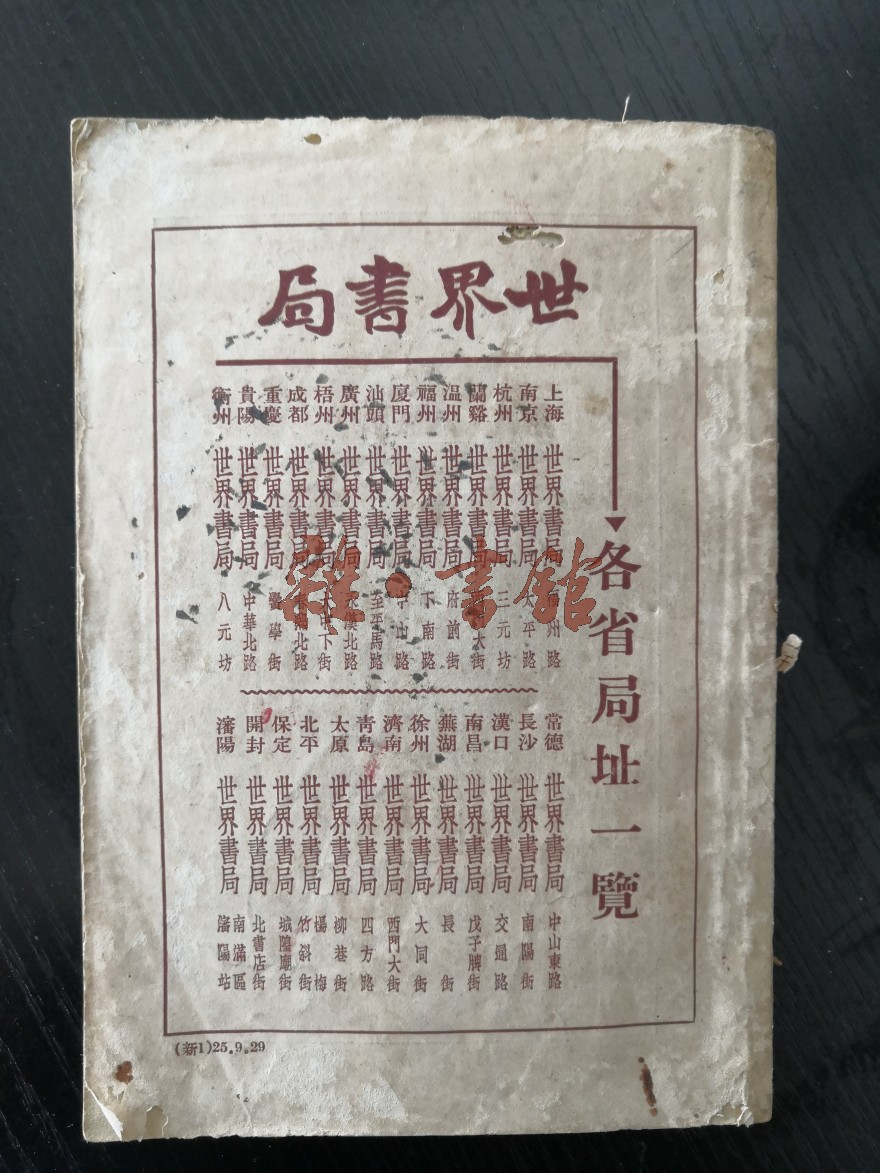 世界書局
各省局址一覽
上海 世界書局 福州路
南京 世界書局 太平路
杭州 世界書局 三元坊
蘭谿 世界書局 大街
温州 世界書局 府前街
福州 世界書局 下南路
廈門 世界書局 中山路
汕頭 世界書局 至平馬路
廣州 世界書局 永漢北路
梧州 世界書局 下街
成都 世界書局 北路
重慶 世界書局 學街
貴陽 世界書局 中華北路
衢州 世界書局 八元坊
常德 世界書局 中山東路
長沙 世界書局 南陽街
漢口 世界書局 交通路
南昌 世界書局 戊子牌街
蕪湖 世界書局 長街
徐州 世界書局 大同街
濟南 世界書局 西門大街
靑島 世界書局 四方路
太原 世界書局 柳巷街
北平 世界書局 楊梅竹斜街
保定 世界書局 城隍廟街
開封 世界書局 北書店街
瀋陽 世界書局 南滿區瀋陽站
(新1)25.9.29
雜·書館